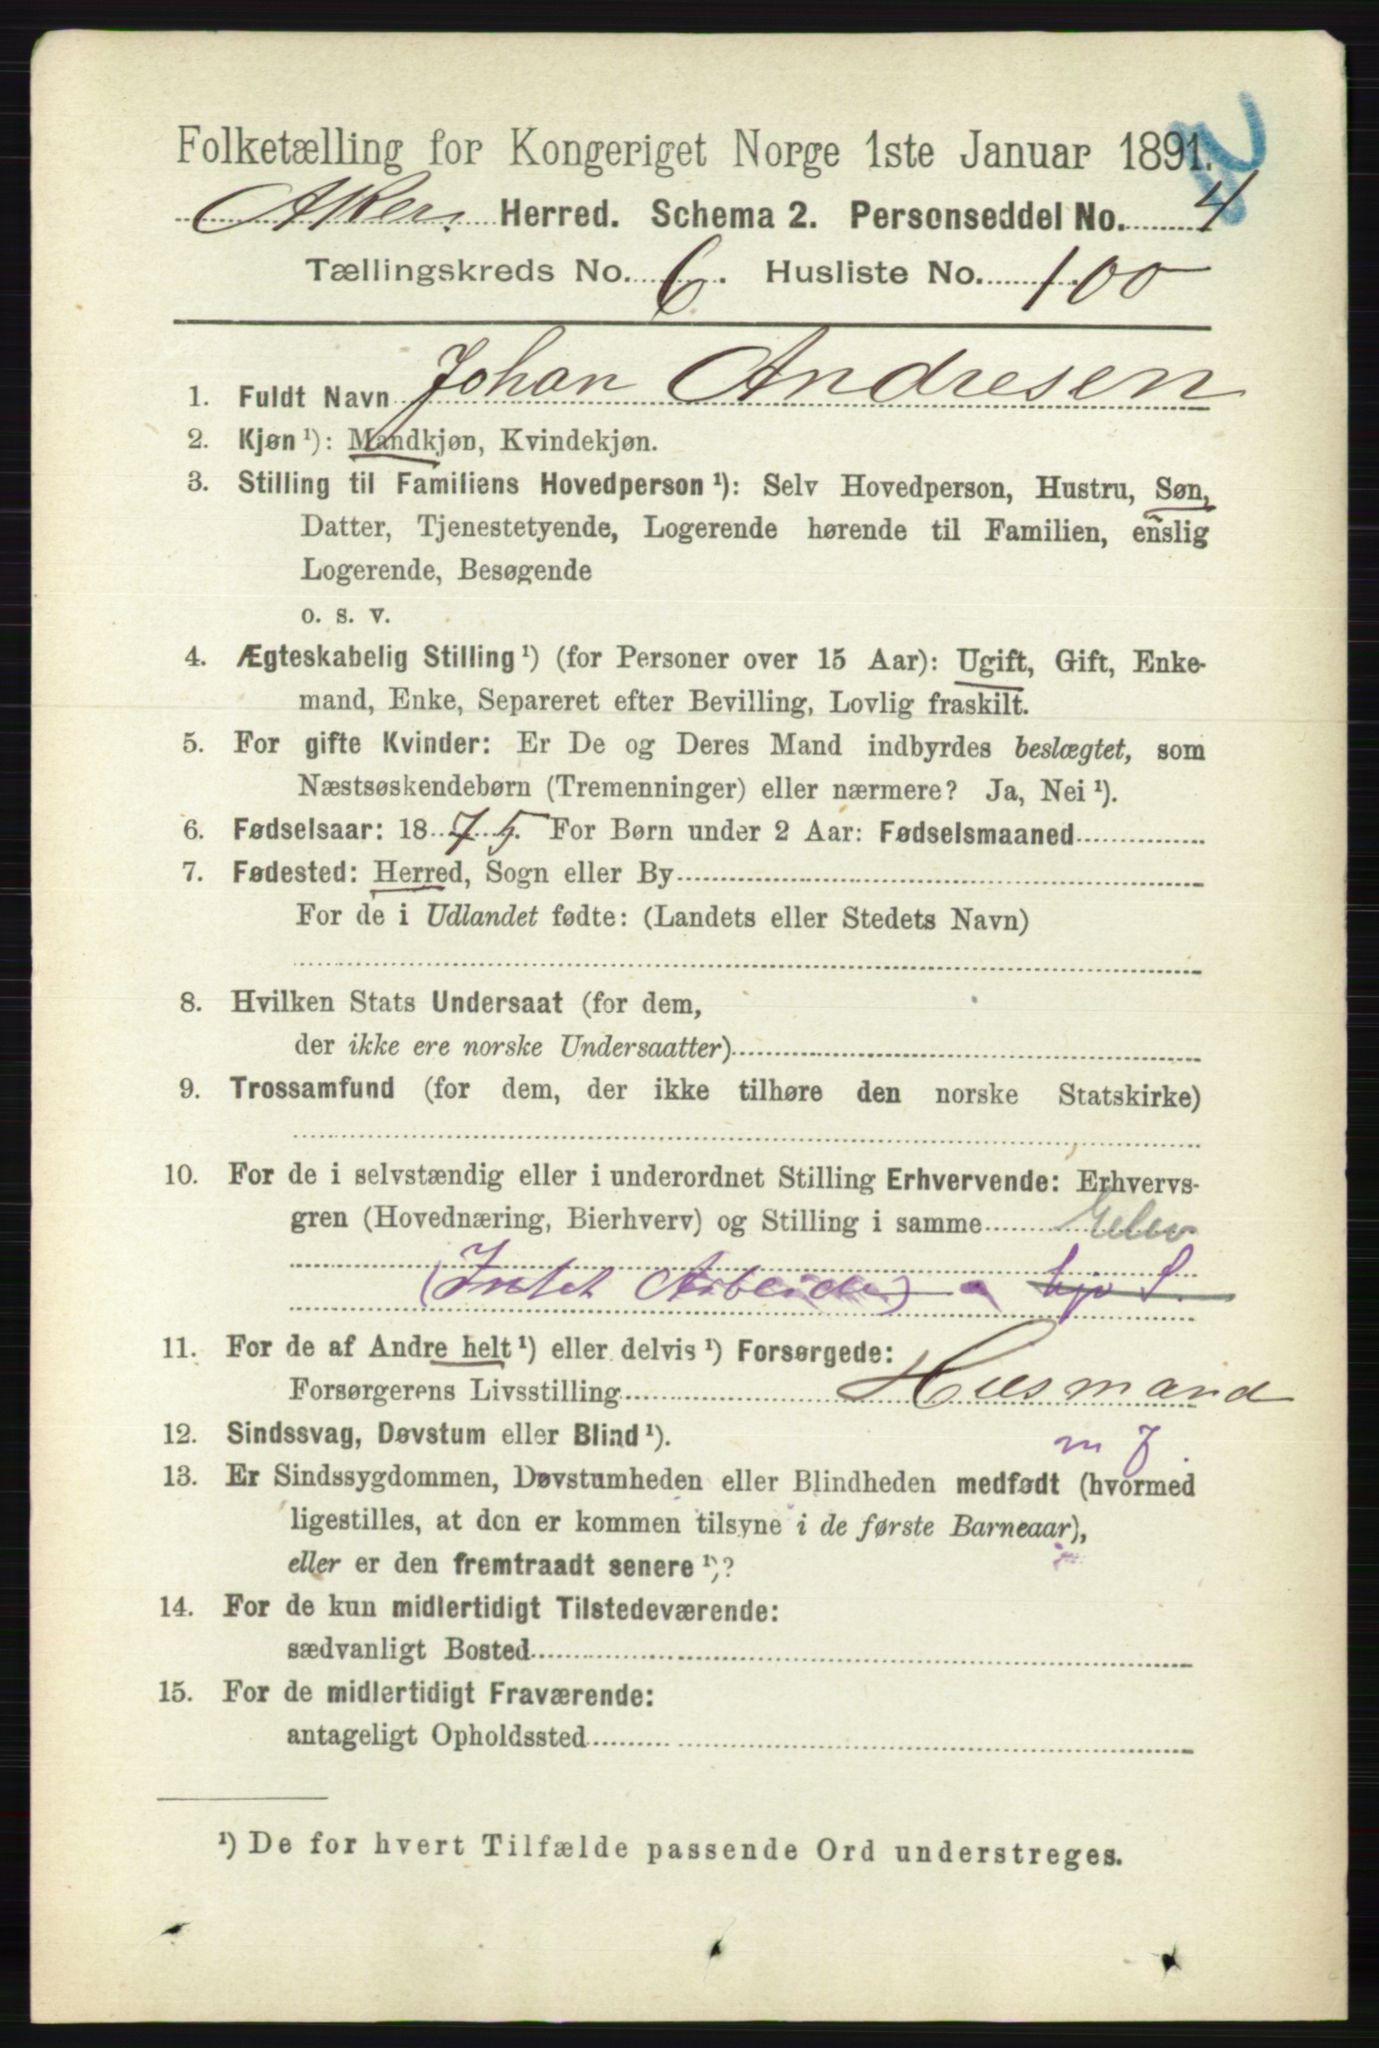 Folketælling for Kongeriget Norge 1ste Januar 1891.
Aker Herred. Schema 2. Personseddel No. 4
Tællingskreds No. 6. Husliste No. 100
1. Fuldt Navn Johan Andresen
2. Kjøn ¹): Mandkjøn, Kvindekjøn.
3. Stilling til Familiens Hovedperson ¹): Selv Hovedperson, Hustru, Søn,
Datter, Tjenestetyende, Logerende hørende til Familien, enslig
Logerende, Besøgende
o. s. v.
4. Ægteskabelig Stilling ¹) (for Personer over 15 Aar): Ugift, Gift, Enke-
mand, Enke, Separeret efter Bevilling, Lovlig fraskilt.
5. For gifte Kvinder: Er De og Deres Mand indbyrdes beslægtet, som
Næstsøskendebørn (Tremenninger) eller nærmere? Ja, Nei ¹).
6. Fødselsaar: 1875. For Børn under 2 Aar: Fødselsmaaned
7. Fødested: Herred, Sogn eller By
For de i Udlandet fødte: (Landets eller Stedets Navn)
8. Hvilken Stats Undersaat (for dem,
der ikke ere norske Undersaatter)
9. Trossamfund (for dem, der ikke tilhøre den norske Statskirke)
10. For de i selvstændig eller i underordnet Stilling Erhvervende: Erhvervs-
gren (Hovednæring, Bierhverv) og Stilling i samme Elev
(Intet Arbeide)
11. For de af Andre helt ¹) eller delvis ¹) Forsørgede:
Forsørgerens Livsstilling Husmand
12. Sindssvag, Døvstum eller Blind ¹).
13. Er Sindssygdommen, Døvstumheden eller Blindheden medfødt (hvormed
ligestilles, at den er kommen tilsyne i de første Barneaar),
eller er den fremtraadt senere ¹)?
14. For de kun midlertidigt Tilstedeværende:
sædvanligt Bosted
15. For de midlertidigt Fraværende:
antageligt Opholdssted
¹) De for hvert Tilfælde passende Ord understreges.